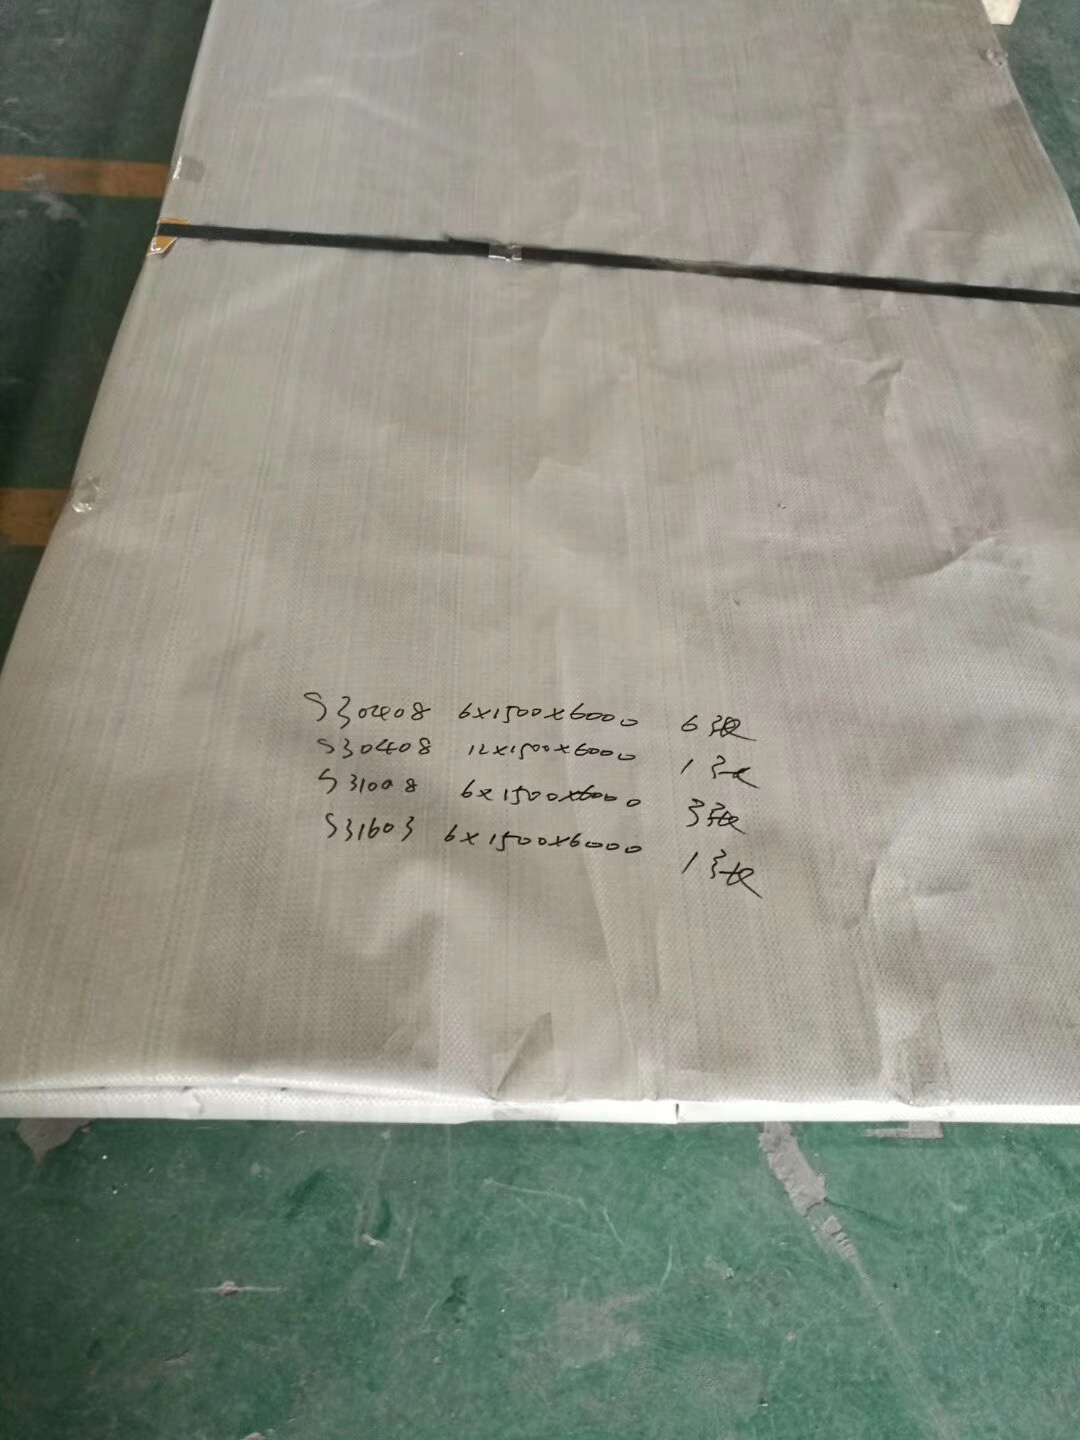 S30408 6x1500x6000 6张
S30408 12x1500x6000 1张
S31008 6x1500x6000 3张
S31603 6x1500x6000 1张